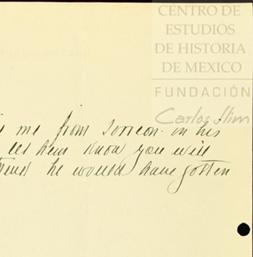 CENTRO DE
ESTUDIOS
DE HISTORIA
DE MEXICO
FUNDACIÓN
Carlos Slim
me from Torreon on his
let him know you will
he would have gotten